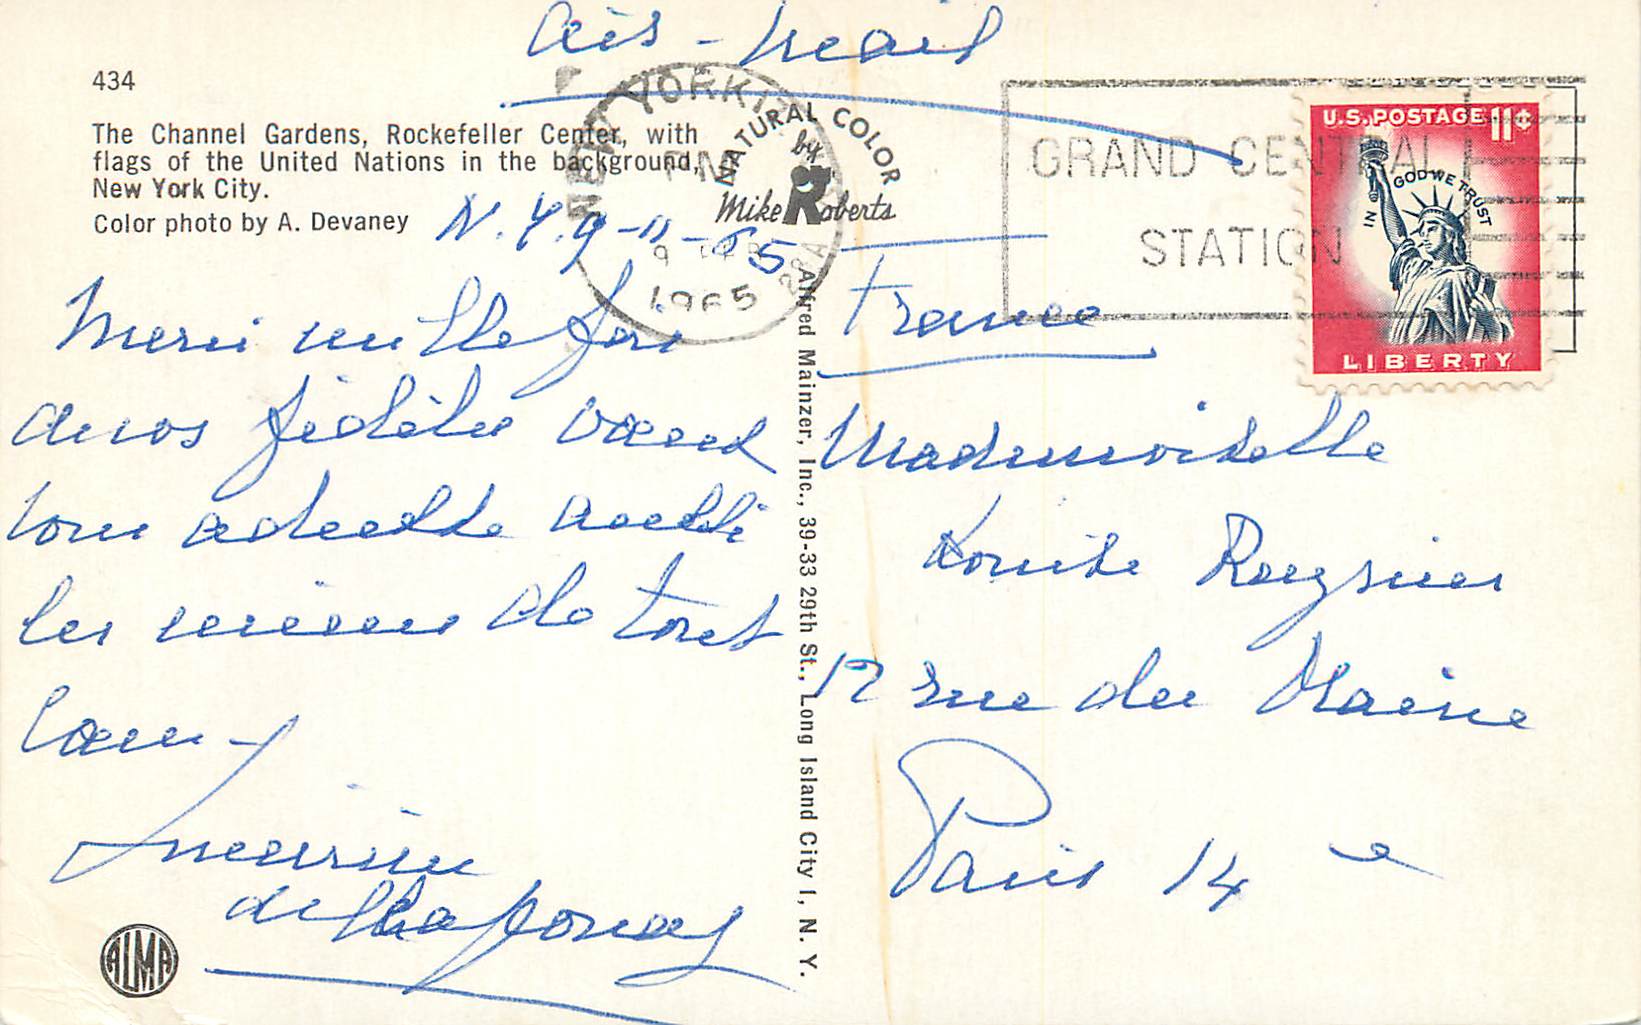 air-mail
434
The Channel Gardens, Rockefeller Center, with
flags of the United Nations in the background,
New York City.
Color photo by A. Devaney
NATURAL COLOR
by
Mike Roberts
NEW YORK
1965
GRAND CENTRAL
STATION
U.S. POSTAGE 11¢
IN GOD WE TRUST
LIBERTY
N.Y. 9-11-65
Merci mille fois
de vos fidèles vœux
vous adresse aussi
les miens de tout
cœur
Alfred Mainzer, Inc., 39-33 29th St., Long Island City 1, N. Y.
France
Mademoiselle
Louise
12 rue du Maine
Paris 14e
ALMA